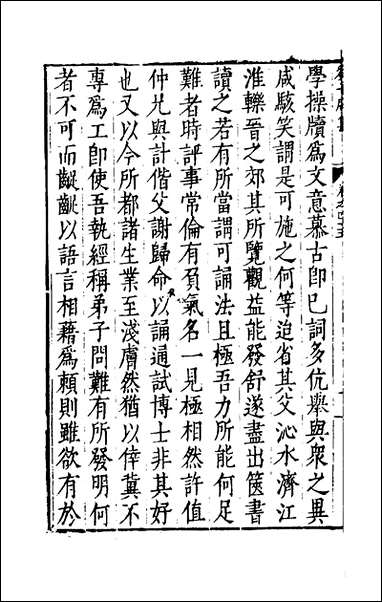 學操牘為文意慕古即已詞多伉舉與衆之異
咸駭笑謂是可施之何等迨省其父沁水濟江
淮轢晉之郊其所覽觀益能發舒遂盡出篋書
讀之若有所當謂可誦法且極吾力所能何足
難者時評事常倫有負氣名一見極相然許值
仲兄與計偕父謝歸命以誦通試博士非其好
也又以今所都諸生業至淺膚然猶以倖冀不
專為工即使吾執經稱弟子問難有所發明何
者不可而齪齪以語言相藉為頼則雖欲有於